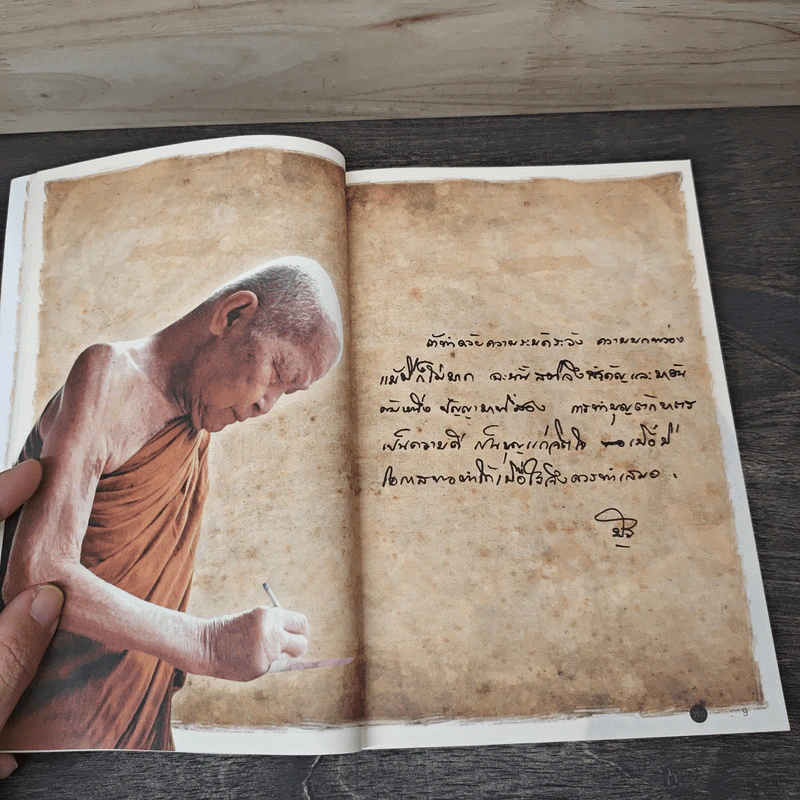 ถ้าทำด้วยความระมัดระวัง ความบกพร่อง
แม้มีก็ไม่มาก ฉะนั้น สติจึงสำคัญและมาอัน
ดับหนึ่ง ปัญญามาที่สอง การทำบุญตักบาตร
เป็นความดี เป็นบุญแก่จิตใจ เมื่อมี
โอกาสพอทำได้เมื่อไรจึงควรทำเสมอ.
9